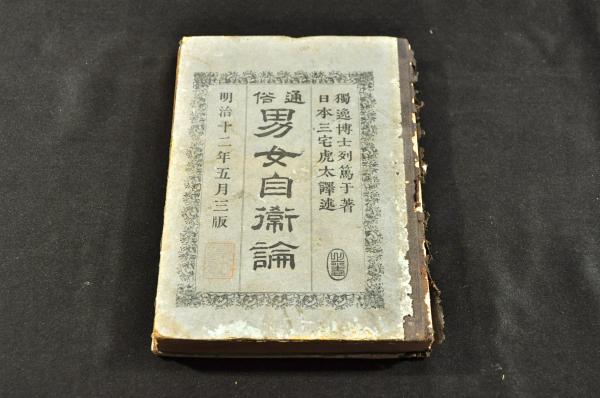 獨逸博士列篤于著
日本三宅虎太譯述
通俗
男女自衞論
明治十二年五月三版